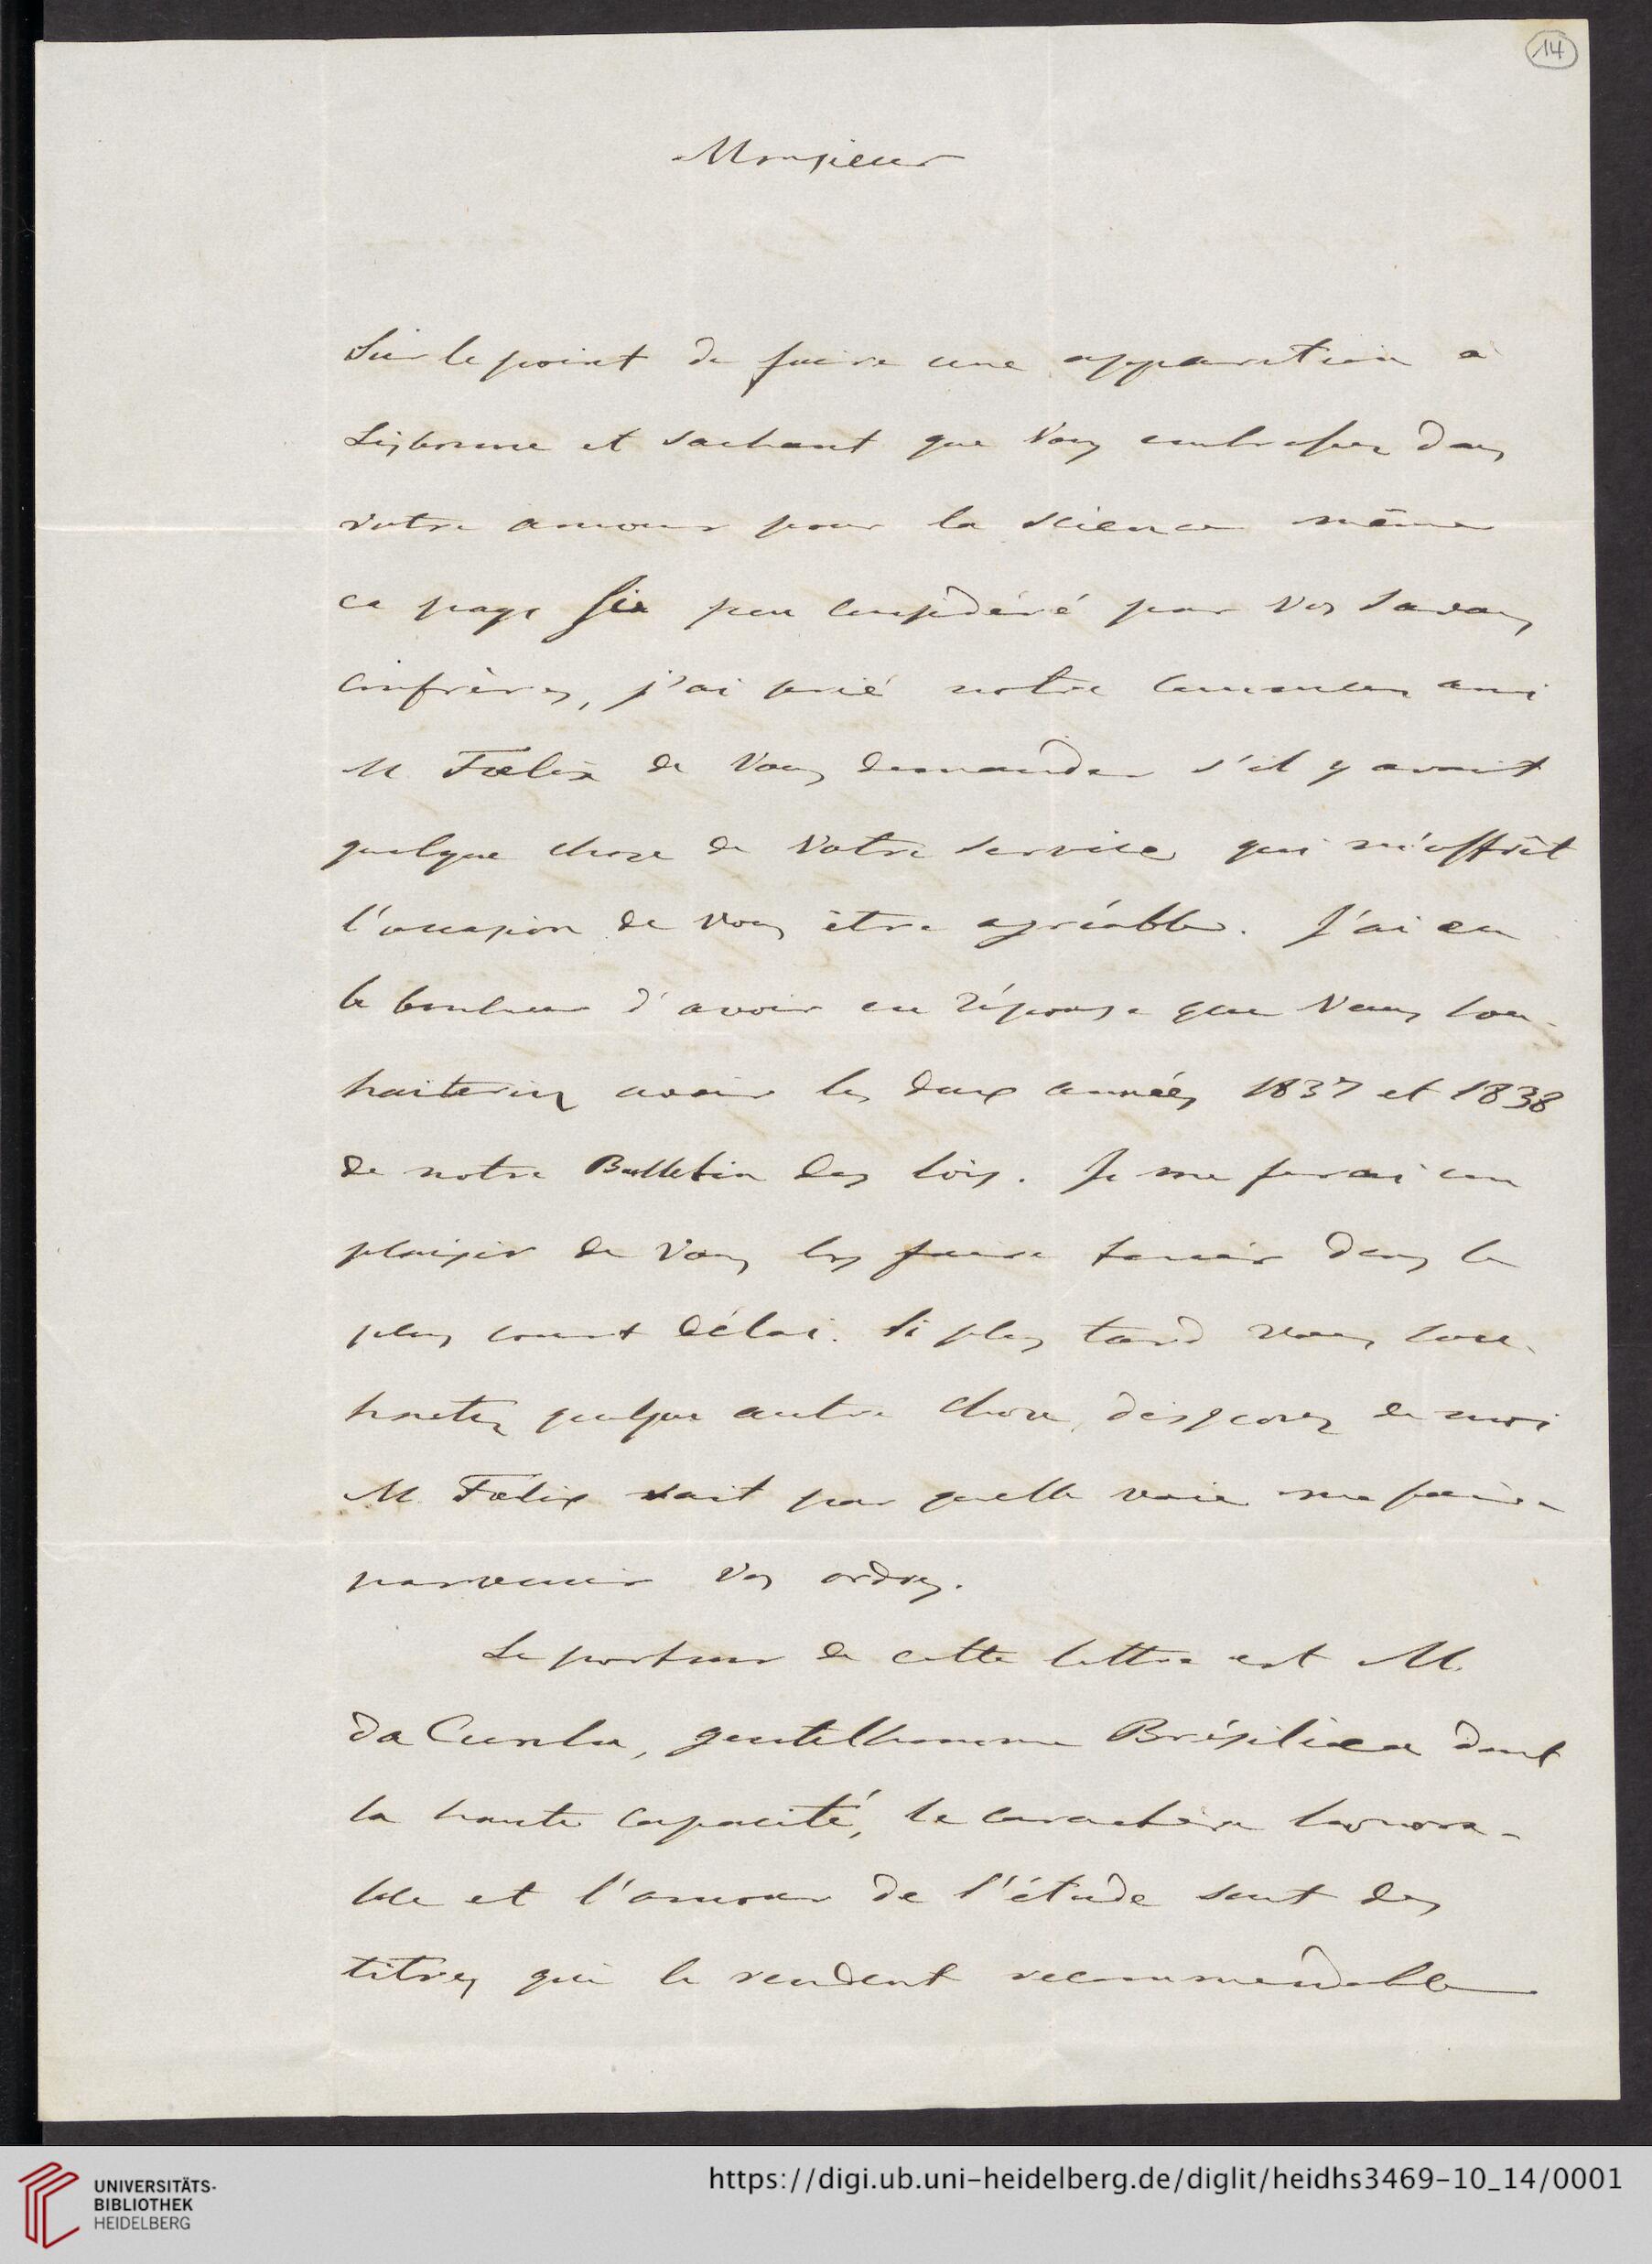 14
Monsieur
Sur le point de faire une apparition à
Lisbonne et sachant que Vous embrassez dans
votre amour pour la science même
ce pays si peu considéré par vos savans
confrères, j'ai prié notre commun ami
M Fœlix de Vous demander s'il y avait
quelque chose de Votre service qui m'offrît
l'occasion de vous être agréable. J'ai eu
le bonheur d'avoir en réponse que Vous sou-
haiteriez avoir les deux années 1837 et 1838
de notre Bulletin des lois. Je me ferai un
plaisir de Vous les faire tenir dans le
plus court délai. Si plus tard vous sou-
haitez quelque autre chose, disposez de moi
M. Fœlix sait par quelle voie me faire
parvenir Vos ordres.
Le porteur de cette lettre est M.
da Cunha, gentilhomme Brésilien dont
la haute capacité, le caractère honora-
ble et l'amour de l'étude sont des
titres qui le rendent recommendable
UNIVERSITÄTS-
BIBLIOTHEK
HEIDELBERG
https://digi.ub.uni-heidelberg.de/diglit/heidhs3469-10_14/0001